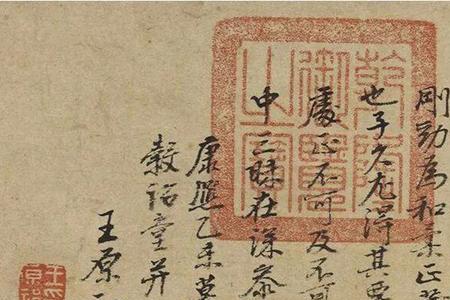 剛勁為和柔正
也子久尤得其要
處正不可及不可
中三昧在深參
康熙乙未
穀詒堂并
王原
乾隆
御覽
之寶